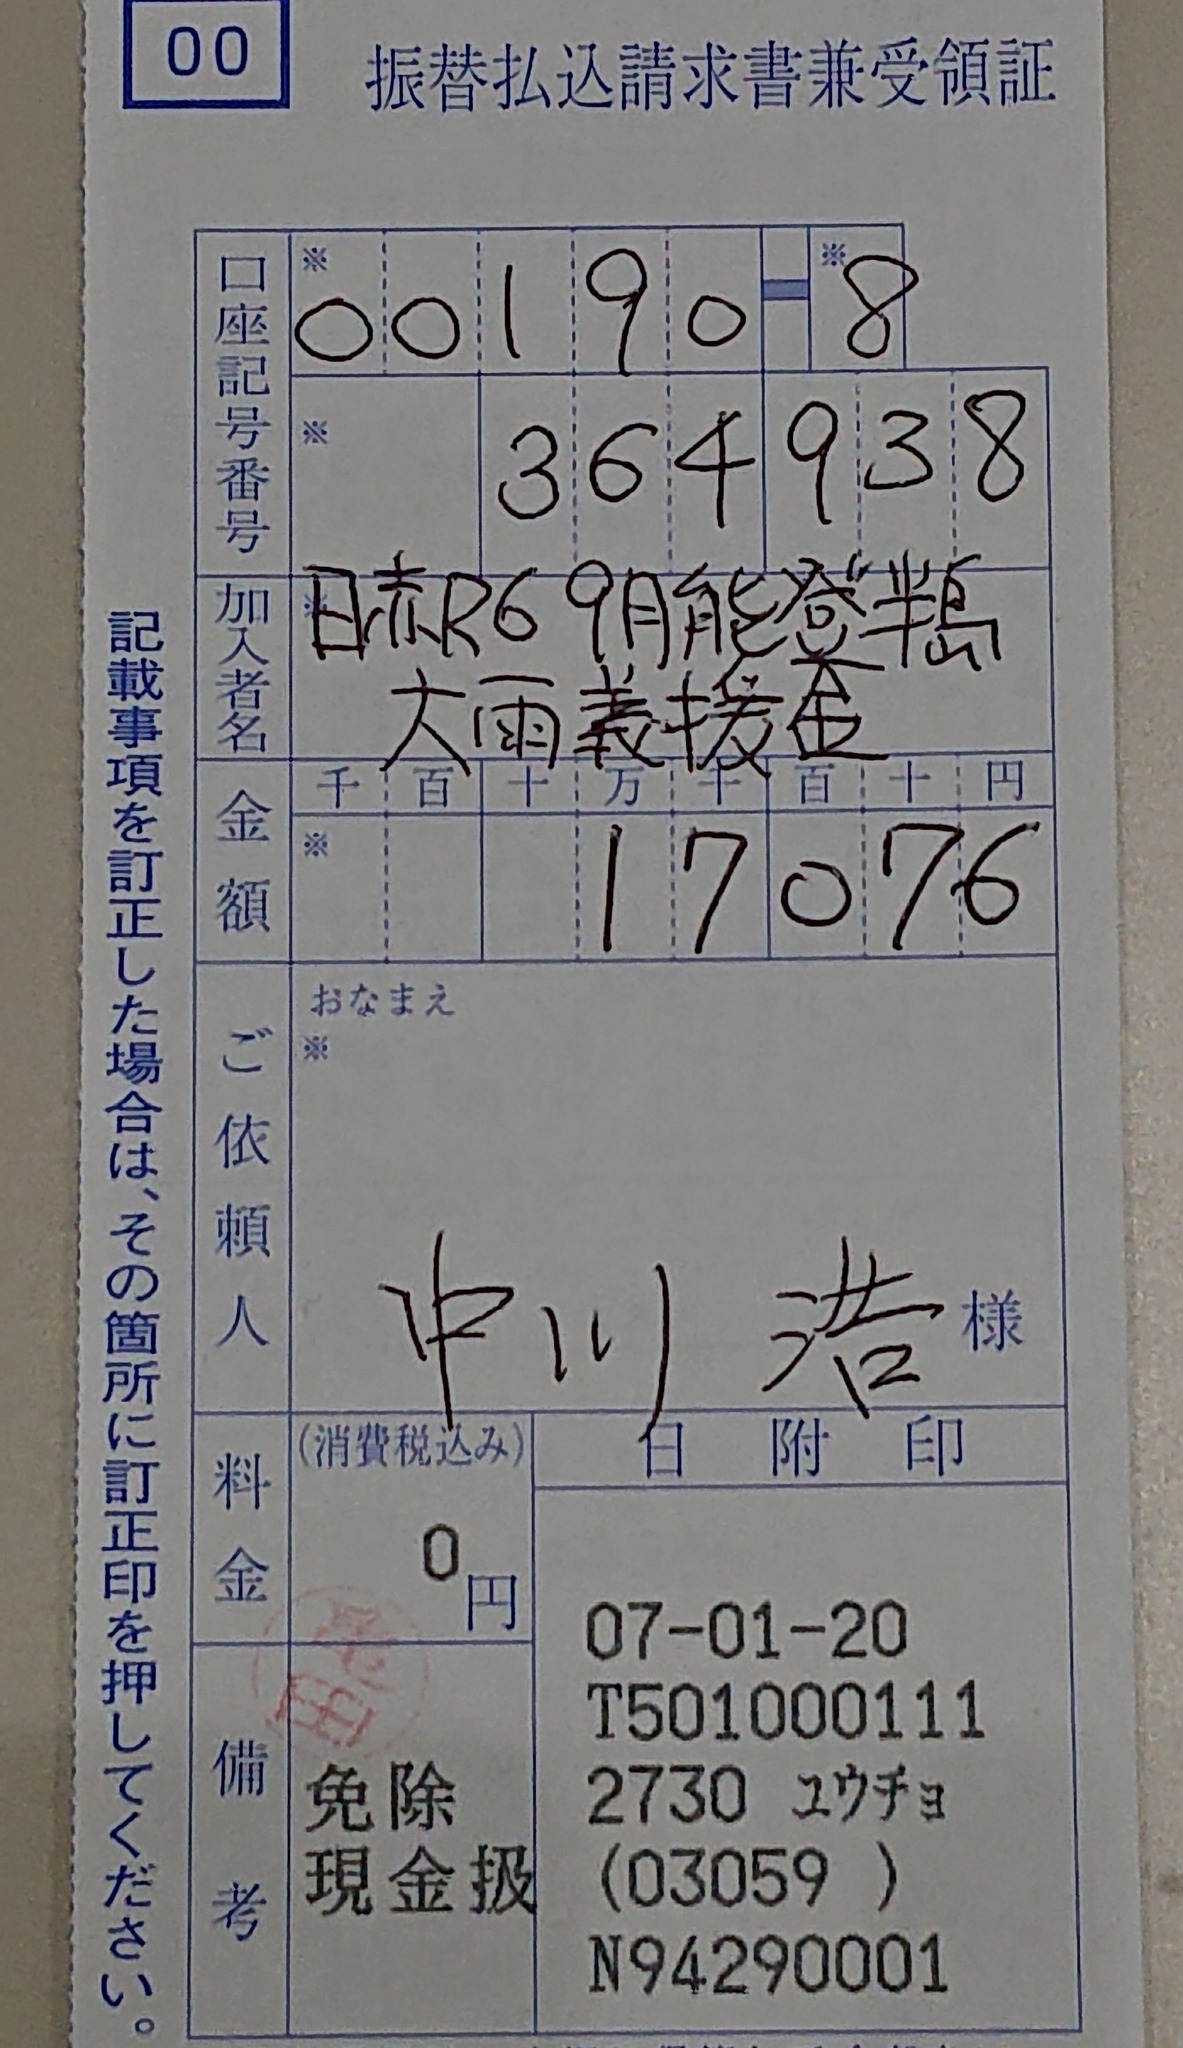 00
振替払込請求書兼受領証
口座記号番号
※ 00190-※8
※ 364938
加入者名
※ 日赤R6 9月能登半島
大雨義援金
金額
千百十万千百十円
※ 17076
ご依頼人
おなまえ
※
中川 浩 様
料金
(消費税込み)
0円
日附印
07-01-20
T501000111
2730 ユウチョ
(03059 )
N94290001
備考
免除
現金扱
記載事項を訂正した場合は、その箇所に訂正印を押してください。